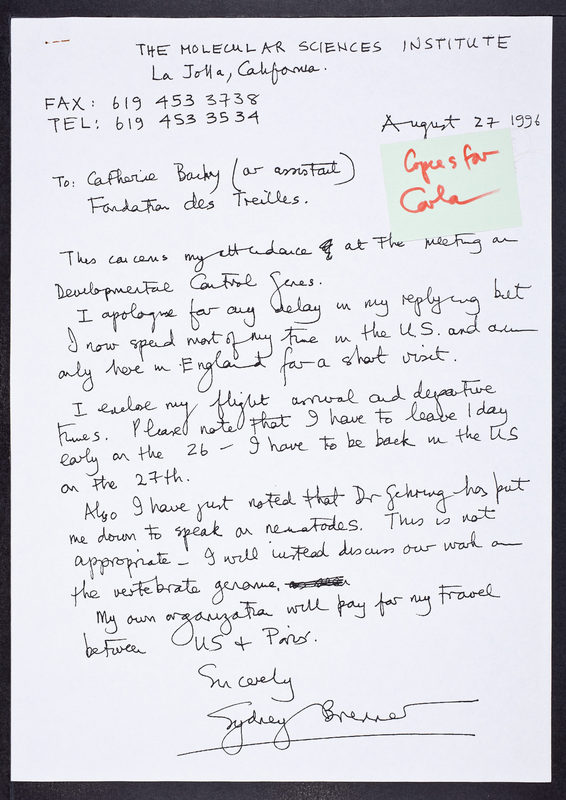 THE MOLECULAR SCIENCES INSTITUTE
La Jolla, California.
FAX: 619 453 3738
TEL: 619 453 3534
August 27 1996
Copies for
Carla
To: Catherine Bachy (or assistant)
Fondation des Treilles.
This concerns my attendance at the meeting on
Developmental Control Genes.
I apologise for any delay in my replying but
I now spend most of my time in the U.S. and am
only here in England for a short visit.
I enclose my flight arrival and departure
times. Please note that I have to leave 1 day
early on the 26 – I have to be back in the US
on the 27th.
Also I have just noted that Dr Gehring has put
me down to speak on nematodes. This is not
appropriate – I will instead discuss our work on
the vertebrate genome.
My own organization will pay for my travel
between US + Paris.
Sincerely
Sydney Brenner